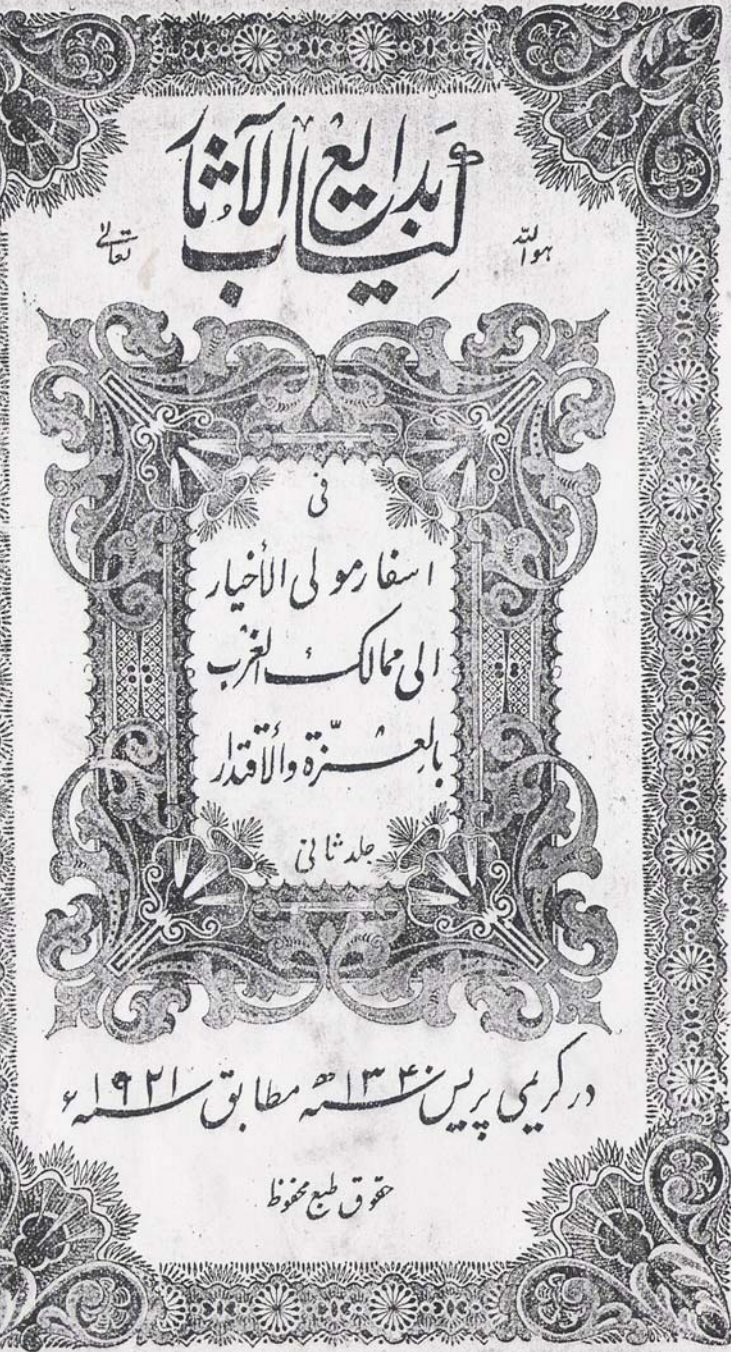 هوالله
کتاب بدایع الآثار
تعالی
فی
اسفار مولی الأخیار
الی ممالک الغرب
بالعِزّة والأقتدار
جلد ثانی
در کریمی پریس سنه ۱۳۴۰ ھ مطابق سنه ۱۹۲۱ ء
حقوق طبع محفوظ